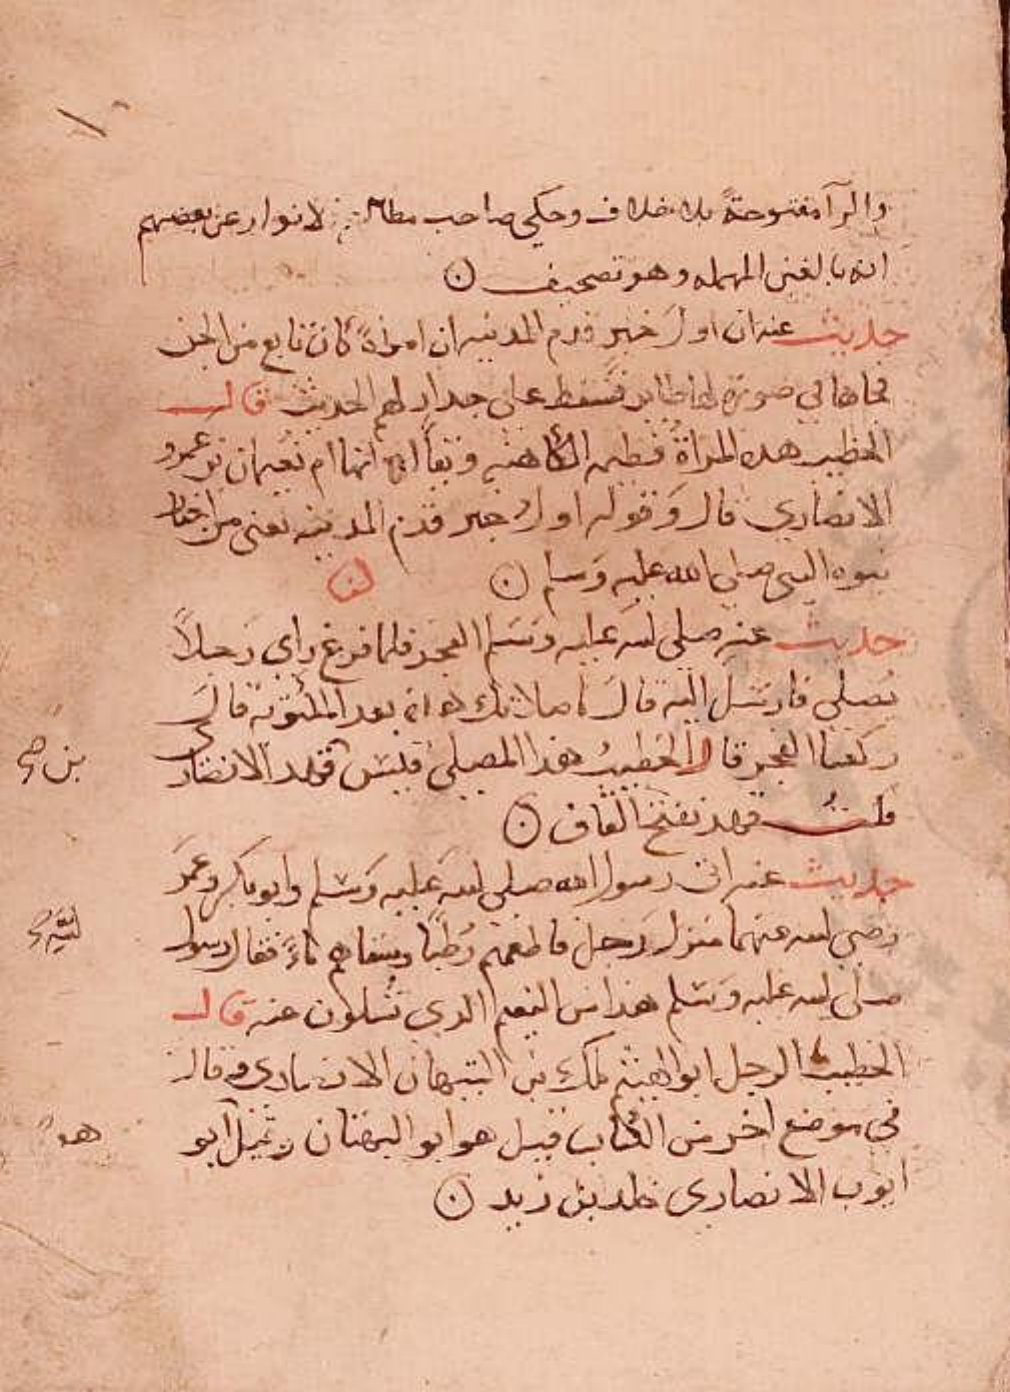 والرآ مفتوحة بلا خلاف وحكي صاحب مطالع الانوار عن بعضهم
انه بالغين المهمله وهو تصحيف ۞
حديث عنه ان اول خبر قدم المدينه ان امراة كان تابع من الجن
فجاها في صورة طاير فسقط على جدار لهم الحديث قال
الخطيب هذه المراة فطيمه الكاهنه ويقال انها ام نعمان بن عمرو
الانصاري قال وقوله اول خبر قدم المدينه يعني من اخبار
نبوه النبي صلى الله عليه وسلم ۞
حديث عنه صلى الله عليه وسلم الفجر فلما فرغ راي رجلاً
يصلي فارسل اليه قال ما صلاتك هذه بعد المكتوبة قال
ركعتا الفجر قال الخطيب هذا المصلي قيس قهد الانصاري
قلت قهد بفتح القاف ۞
حديث عنه اتى رسول الله صلى الله عليه وسلم وابو بكر وعمر
رضي الله عنهما منزل رجل فاطعمهم رُطَبًا وسقاهم ماءً فقال رسول
صلى الله عليه وسلم هذا من النعيم الذي تسلون عنه قال
الخطيب الرجل ابو الهيثم ملك بن التيهان الانصاري وقال
في موضع اخر من الكتاب قيل هو ابو الهيثم وقيل ابو
ايوب الانصاري خلد بن زيد ۞
بن صح
لله صح